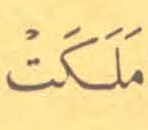 مَلَكَتْ